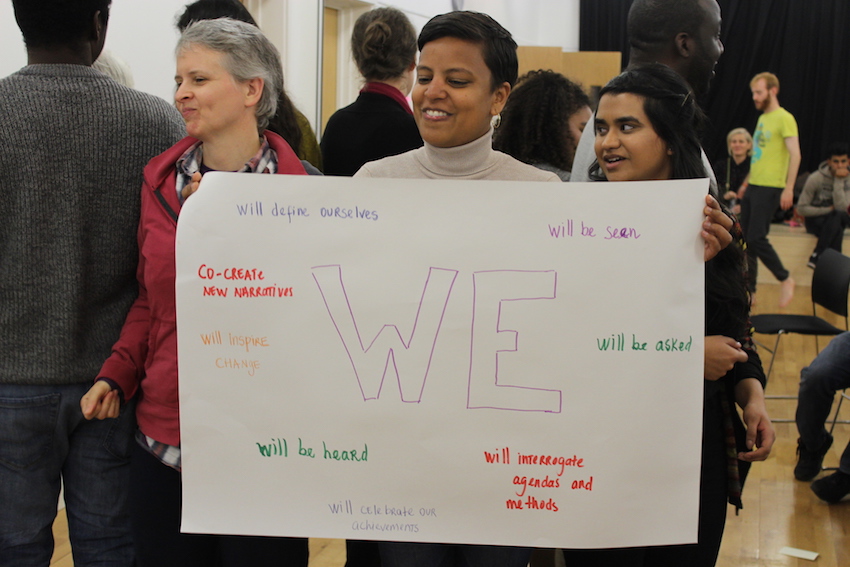 Will define ourselves
Will be seen
CO-CREATE
NEW NARRATIVES
WE
Will INSPIRE
CHANGE
Will be asked
Will be heard
Will interrogate
agendas and
methods
Will celebrate our
achievements